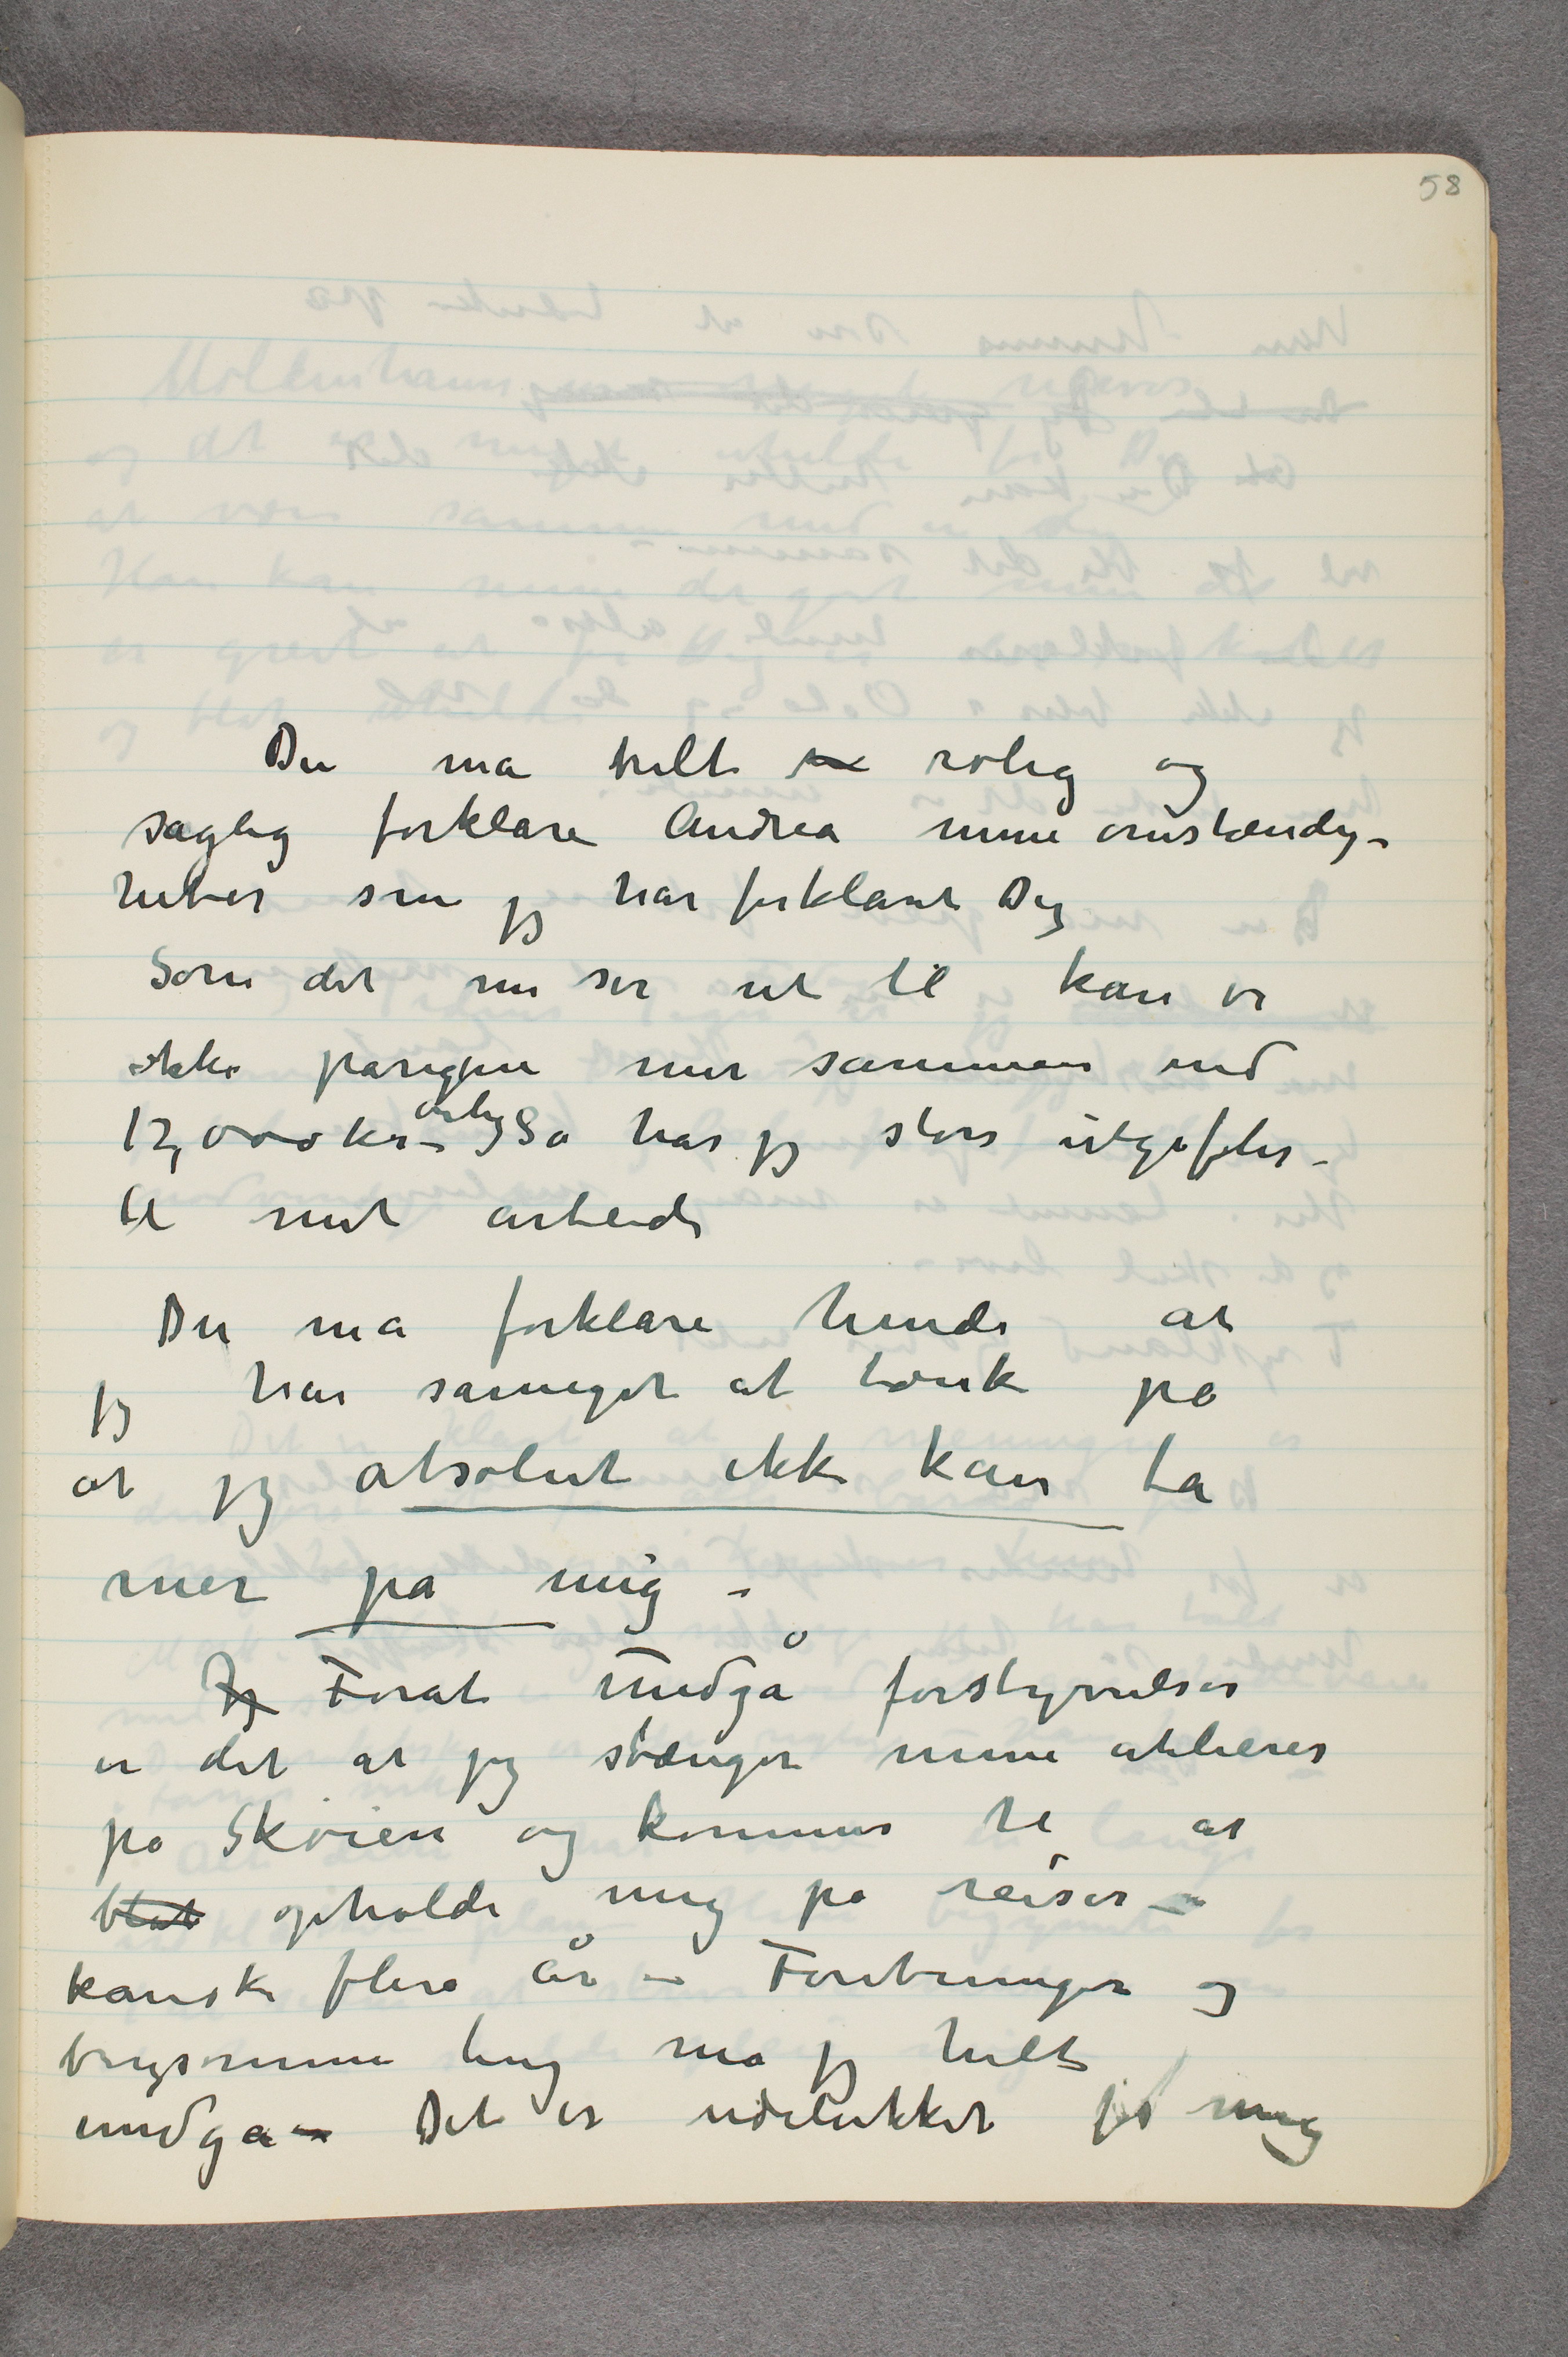 58
Du ma helt rolig og
saglig forklare Andrea mine omstændig-
heter som jeg har forklaret Dig
Som det nu ser ut til kan vi
ikke påregne mer sammen end
12,000 kr – årlig Så har jeg store utgifter –
til mit arbeide
Du ma forklare hende at
jeg har sameget at tænke på
at jeg absolut ikke kan ta
mer på mig –
Jeg Forat undgå forstyrrelser
er det at jeg stænger mine atelierer
på Skøien og kommer til at
blot opholde mig på reiser –
kanske flere år – Foretninger og
brysomme ting ma jeg helt
undga – Det er udelukket for mig